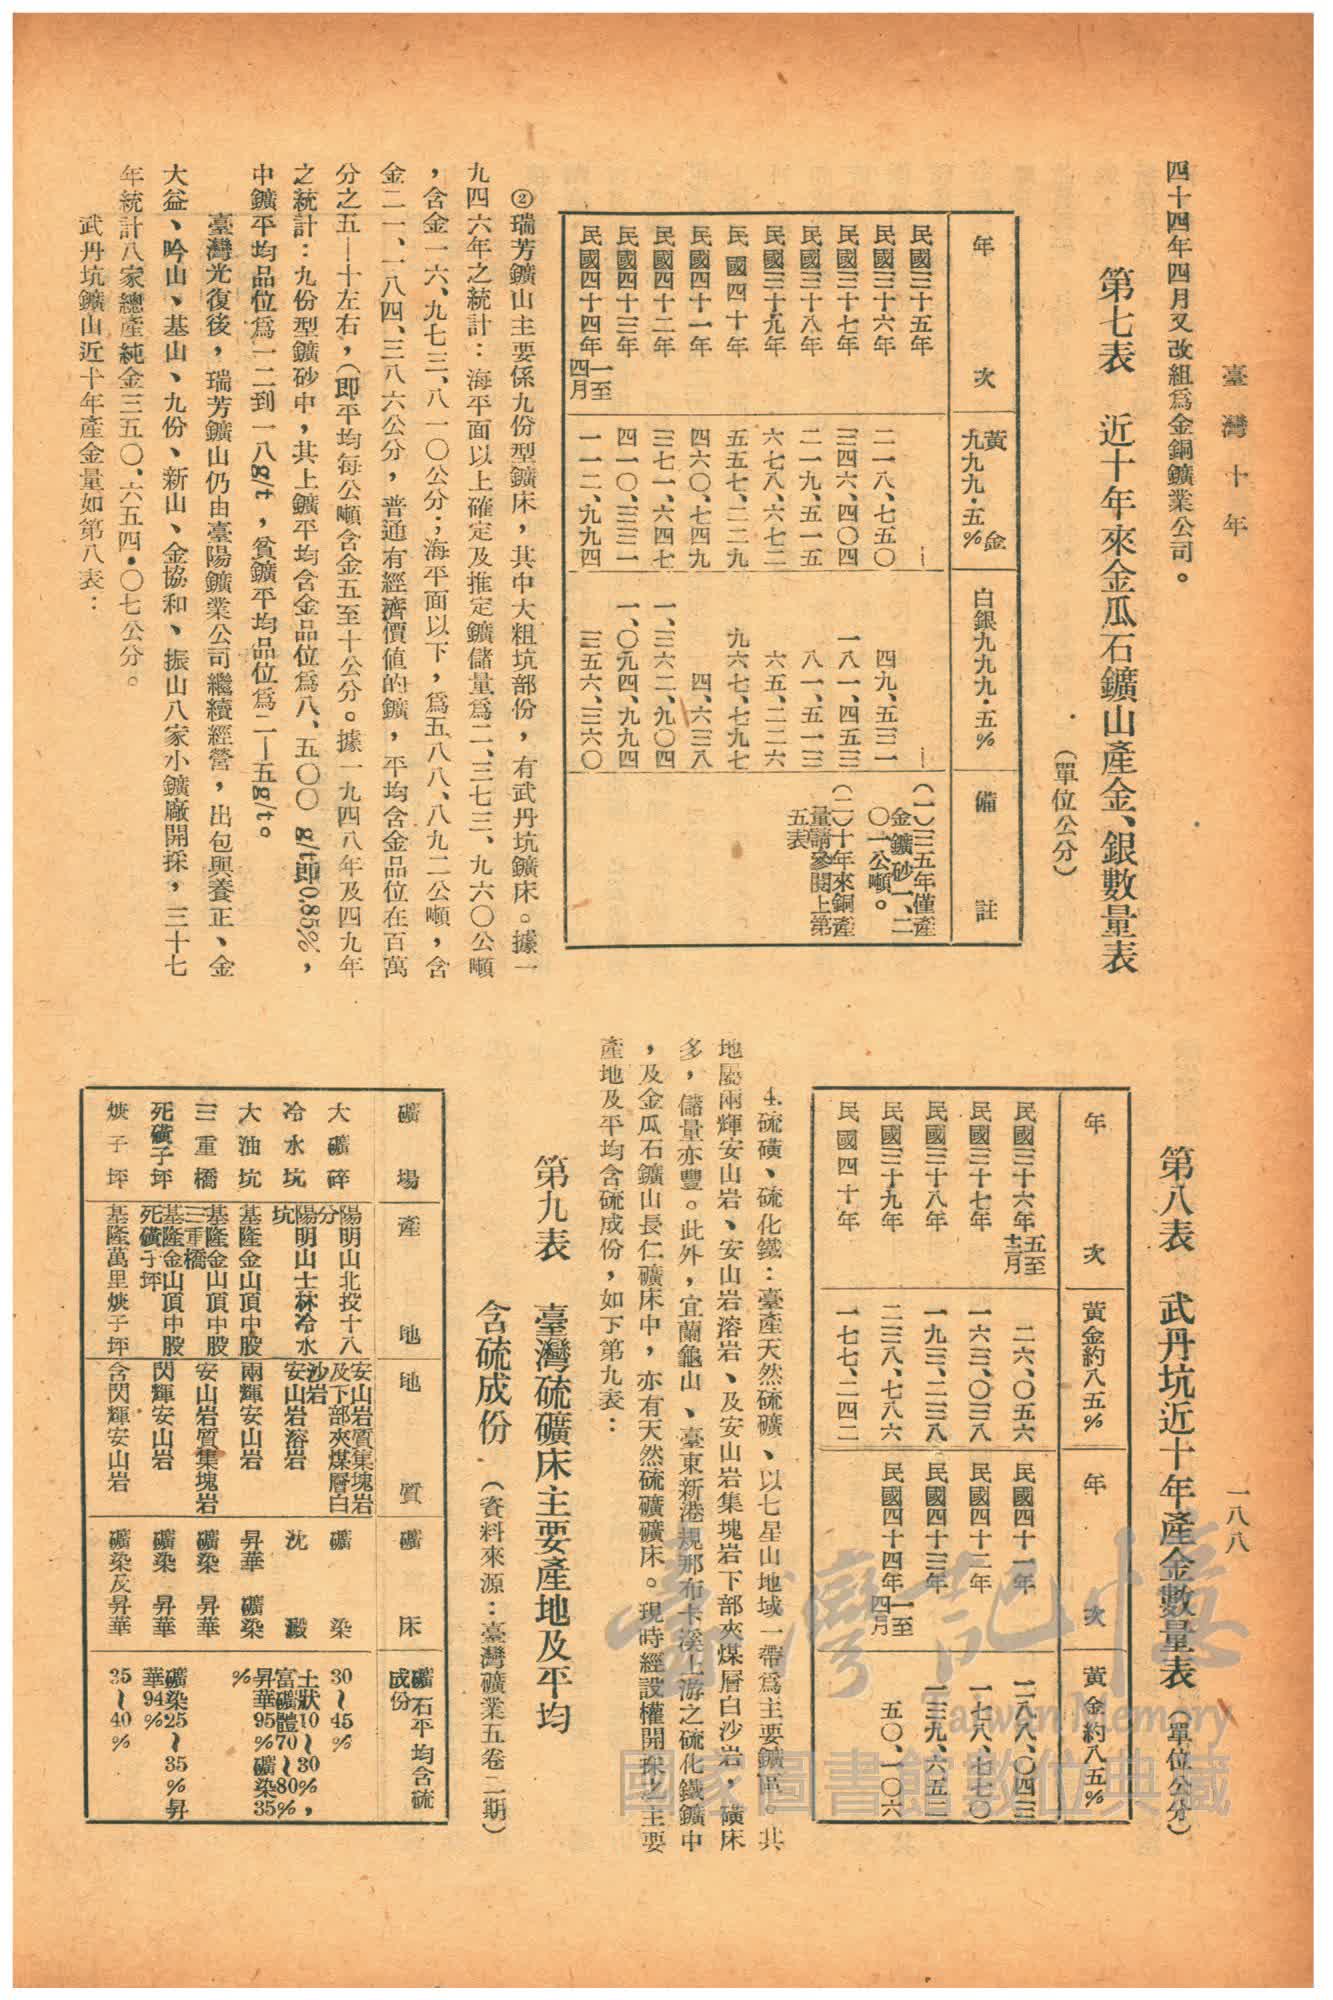 臺灣十年
一八八
四十四年四月又改組爲金銅鑛業公司。
第七表　近十年來金瓜石鑛山產金、銀數量表
（單位公分）
年次　黃金九九九·五%　白銀九九九·五%　備註
民國三十五年　—　—　（一）三五年僅產金鑛砂一、二〇一公噸。
民國三十六年　二一八、七五〇　四九、五三一
民國三十七年　三四六、四〇四　一八一、四五三　（二）十年來銅產量請參閱上第五表
民國三十八年　二一九、五一五　八一、五一三
民國三十九年　六七八、六七二　六五、二二六
民國四十年　五五七、二二九　九六七、七九七
民國四十一年　四六〇、七四九　四、六三八
民國四十二年　三七一、六四七　一、三六二、九〇四
民國四十三年　四一〇、三三一　一、〇九四、九九四
民國四十四年一至四月　一一二、九九四　三五六、三六〇
②瑞芳鑛山主要係九份型鑛床，其中大粗坑部份，有武丹坑鑛床。據一
九四六年之統計：海平面以上確定及推定鑛儲量爲二、三七三、九六〇公噸
，含金一六、九七三、八一〇公分；海平面以下，爲五八八、八九二公噸，含
金二一、一八四、三八六公分，普通有經濟價值的鑛，平均含金品位在百萬
分之五—十左右，（即平均每公噸含金五至十公分。據一九四八年及四九年
之統計：九份型鑛砂中，其上鑛平均含金品位爲八、五〇〇 g/t即0.85%，
中鑛平均品位爲一二到一八g/t，貧鑛平均品位爲二—五g/t。
臺灣光復後，瑞芳鑛山仍由臺陽鑛業公司繼續經營，出包與養正、金
大益、吟山、基山、九份、新山、金協和、振山八家小鑛廠開採，三十七
年統計八家總產純金三五〇、六五四·〇七公分。
武丹坑鑛山近十年產金量如第八表：
第八表　武丹坑近十年產金數量表（單位公分）
年次　黃金約八五%　年次　黃金約八五%
民國三十六年五至十二月　二六、〇五六　民國四十一年　二八八、〇四三
民國三十七年　一六三、〇三八　民國四十二年　一七八、七七〇
民國三十八年　一九三、二三八　民國四十三年　一三九、六五二
民國三十九年　二三八、七八六　民國四十四年一至四月　五〇、一〇六
民國四十年　一七七、二四二
4.硫磺、硫化鐵：臺產天然硫礦、以七星山地域一帶爲主要鑛區。其
地屬兩輝安山岩、安山岩溶岩、及安山岩集塊岩下部夾煤層白沙岩，礦床
多，儲量亦豐。此外，宜蘭龜山、臺東新港規那布卡溪上游之硫化鐵鑛中
，及金瓜石鑛山長仁礦床中，亦有天然硫礦礦床。現時經設權開採之主要
產地及平均含硫成份，如下第九表：
第九表　臺灣硫礦床主要產地及平均
含硫成份（資料來源：臺灣礦業五卷二期）
礦場　產地　地質　礦床　礦石平均含硫成份
大礦碎　陽明山北投十八分　安山岩質集塊岩及下部夾煤層白沙岩　礦染　30～45%
冷水坑　陽明山士林冷水坑　安山岩溶岩　沈澱　土狀10～30%，富礦體70～80%
大油坑　基隆金山頂中股　兩輝安山岩　昇華　礦染　昇華95%礦染35%
三重橋　基隆金山頂中股三重橋　安山岩質集塊岩　礦染　昇華
死磺子坪　基隆金山頂中股死磺子坪　閃輝安山岩　礦染　昇華　礦染25～35%昇華94%
焿子坪　基隆萬里焿子坪　含閃輝安山岩　礦染及昇華　35～40%
臺灣記憶
Taiwan Memory
國家圖書館數位典藏